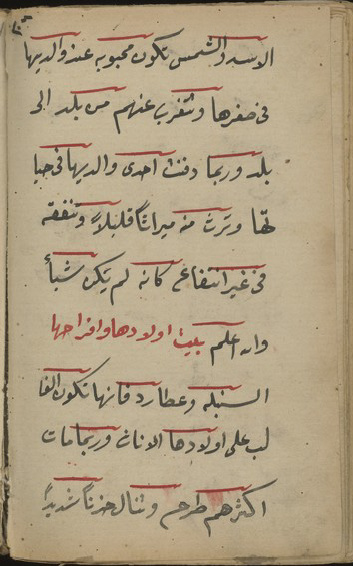 الاسد والشمس تكون محبوبه عند والديها
فى صغرها وتتغرب عنهم من بلد الى
بلد وربما دفنت احدى والديها فى حيا
تها وترث منه ميراثاً قليلاً وتنفقه
فى غير انتفاع كانه لم يكن شيأ
والله اعلم بيت اولادها وافراحها
السنبله وعطارد فانها تكون الغا
لب على اولادها الاناث وربما مات
اكثرهم طرحى وتنال حزناً شديداً